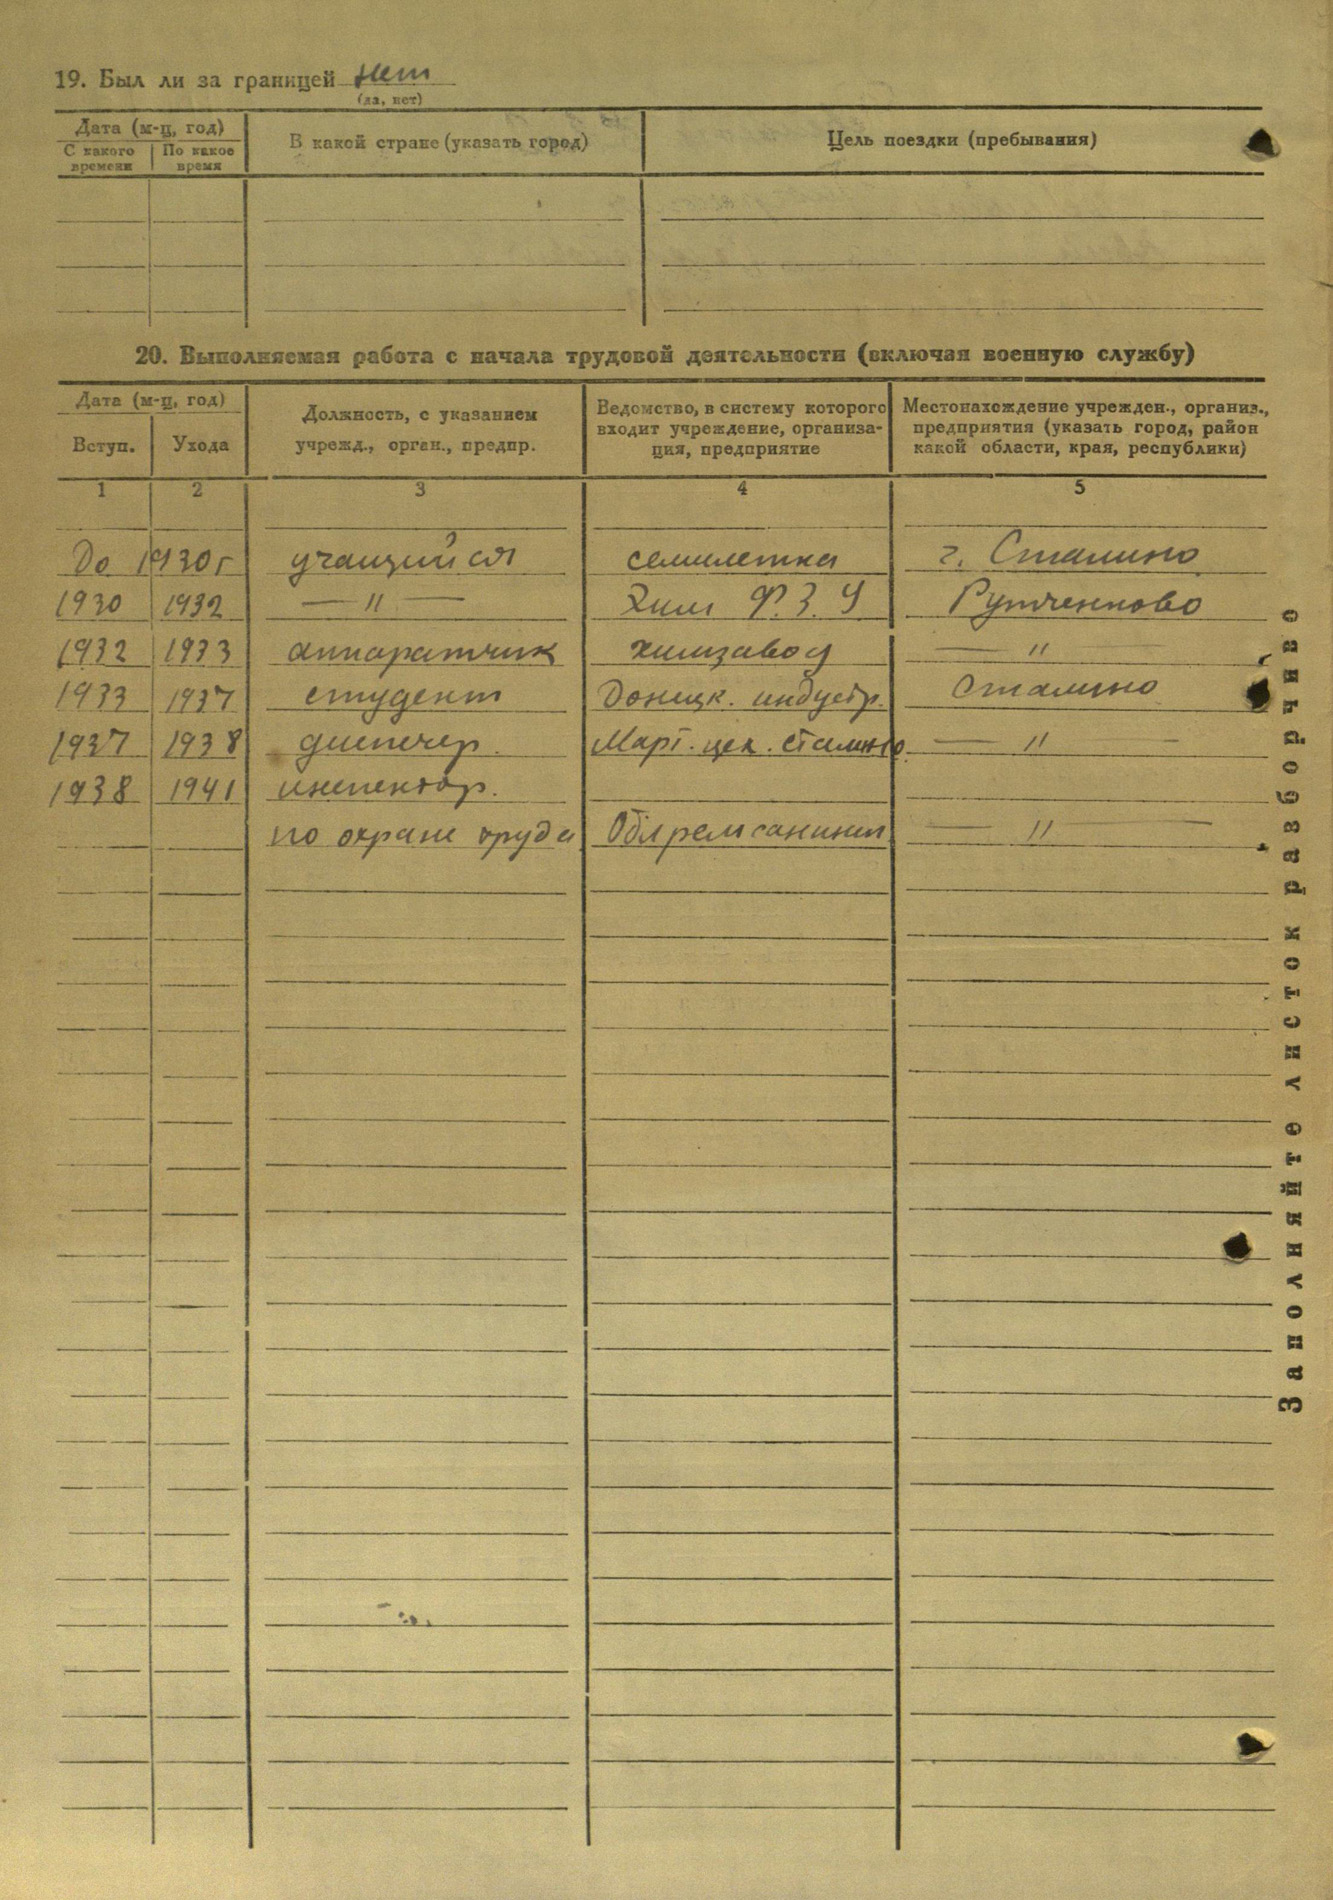 19. Был ли за границей нет
(да, нет)
Дата (м-ц, год)
С какого времени
По какое время
В какой стране (указать город)
Цель поездки (пребывания)
20. Выполняемая работа с начала трудовой деятельности (включая военную службу)
Дата (м-ц, год)
Вступ.
Ухода
Должность, с указанием
учрежд., орган., предпр.
Ведомство, в систему которого
входит учреждение, организа-
ция, предприятие
Местонахождение учрежден., организ.,
предприятия (указать город, район
какой области, края, республики)
1 2 3 4 5
До 1930г учащийся семилетка г. Сталино
1930 1932 — " — Хим Ф.З.У Рутченково
1932 1933 аппаратчик химзавод — " —
1933 1937 студент Донецк. индустр. Сталино
1937 1938 диспечер. Март. цех. Сталино — " —
1938 1941 инспектор.
по охране труда — " —
Заполняйте листок разборчиво